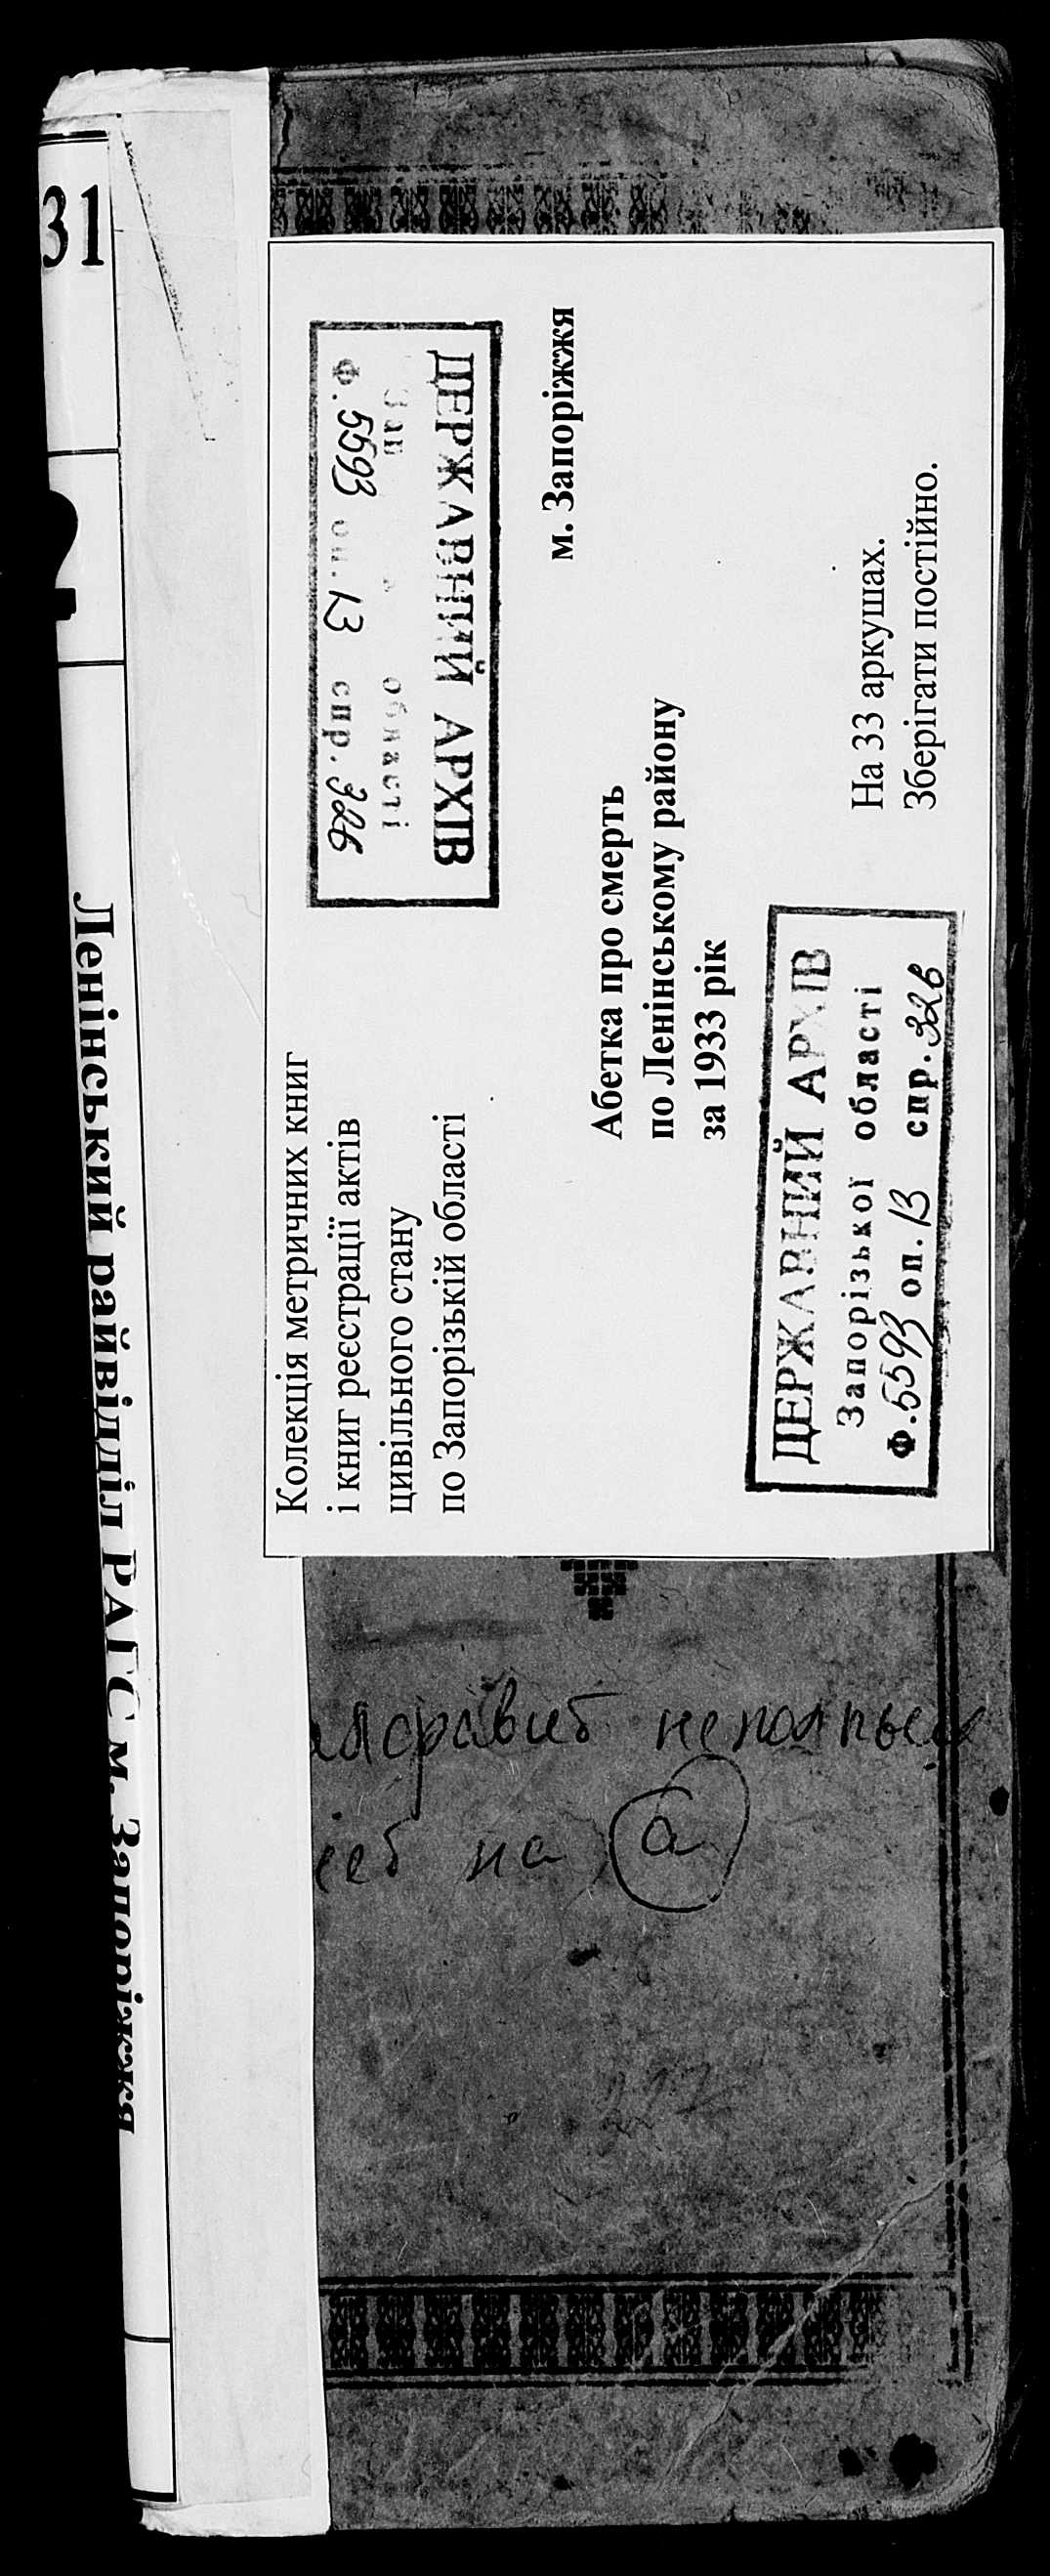 31
2
Ленінський райвідділ РАГС м. Запоріжжя
Колекція метричних книг
і книг реєстрації актів
цивільного стану
по Запорізькій області
ДЕРЖАВНИЙ АРХІВ
області
Ф. 5593 оп. 13 спр. 326
м. Запоріжжя
Абетка про смерть
по Ленінському району
за 1933 рік
На 33 аркушах.
Зберігати постійно.
ДЕРЖАВНИЙ АРХІВ
Запорізької області
Ф. 5593 оп. 13 спр. 326
на а